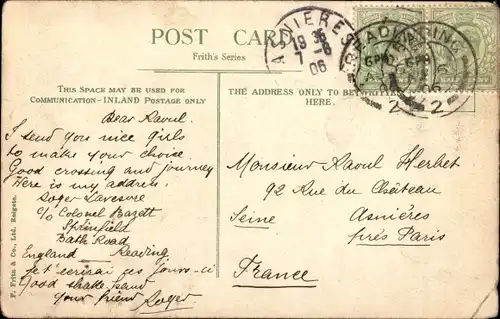 POST CARD
Frith's Series
ASNIERES
19 35
7 - 8
06
READING
THIS SPACE MAY BE USED FOR
COMMUNICATION—INLAND POSTAGE ONLY
THE ADDRESS ONLY TO BE WRITTEN
HERE.
Dear Raoul.
I send you nice girls
to make your choice.
Good crossing and journey
Here is my address.
Roger
c/o Colonel Bazett
Springfield
Bath Road
Reading
England
Je t'ecrirai ces jours-ci
Good shake hand
your friend Roger
Monsieur Raoul Herbet
92 Rue du Château
Asnières
Seine
près Paris
France
F. Frith & Co., Ltd. Reigate.